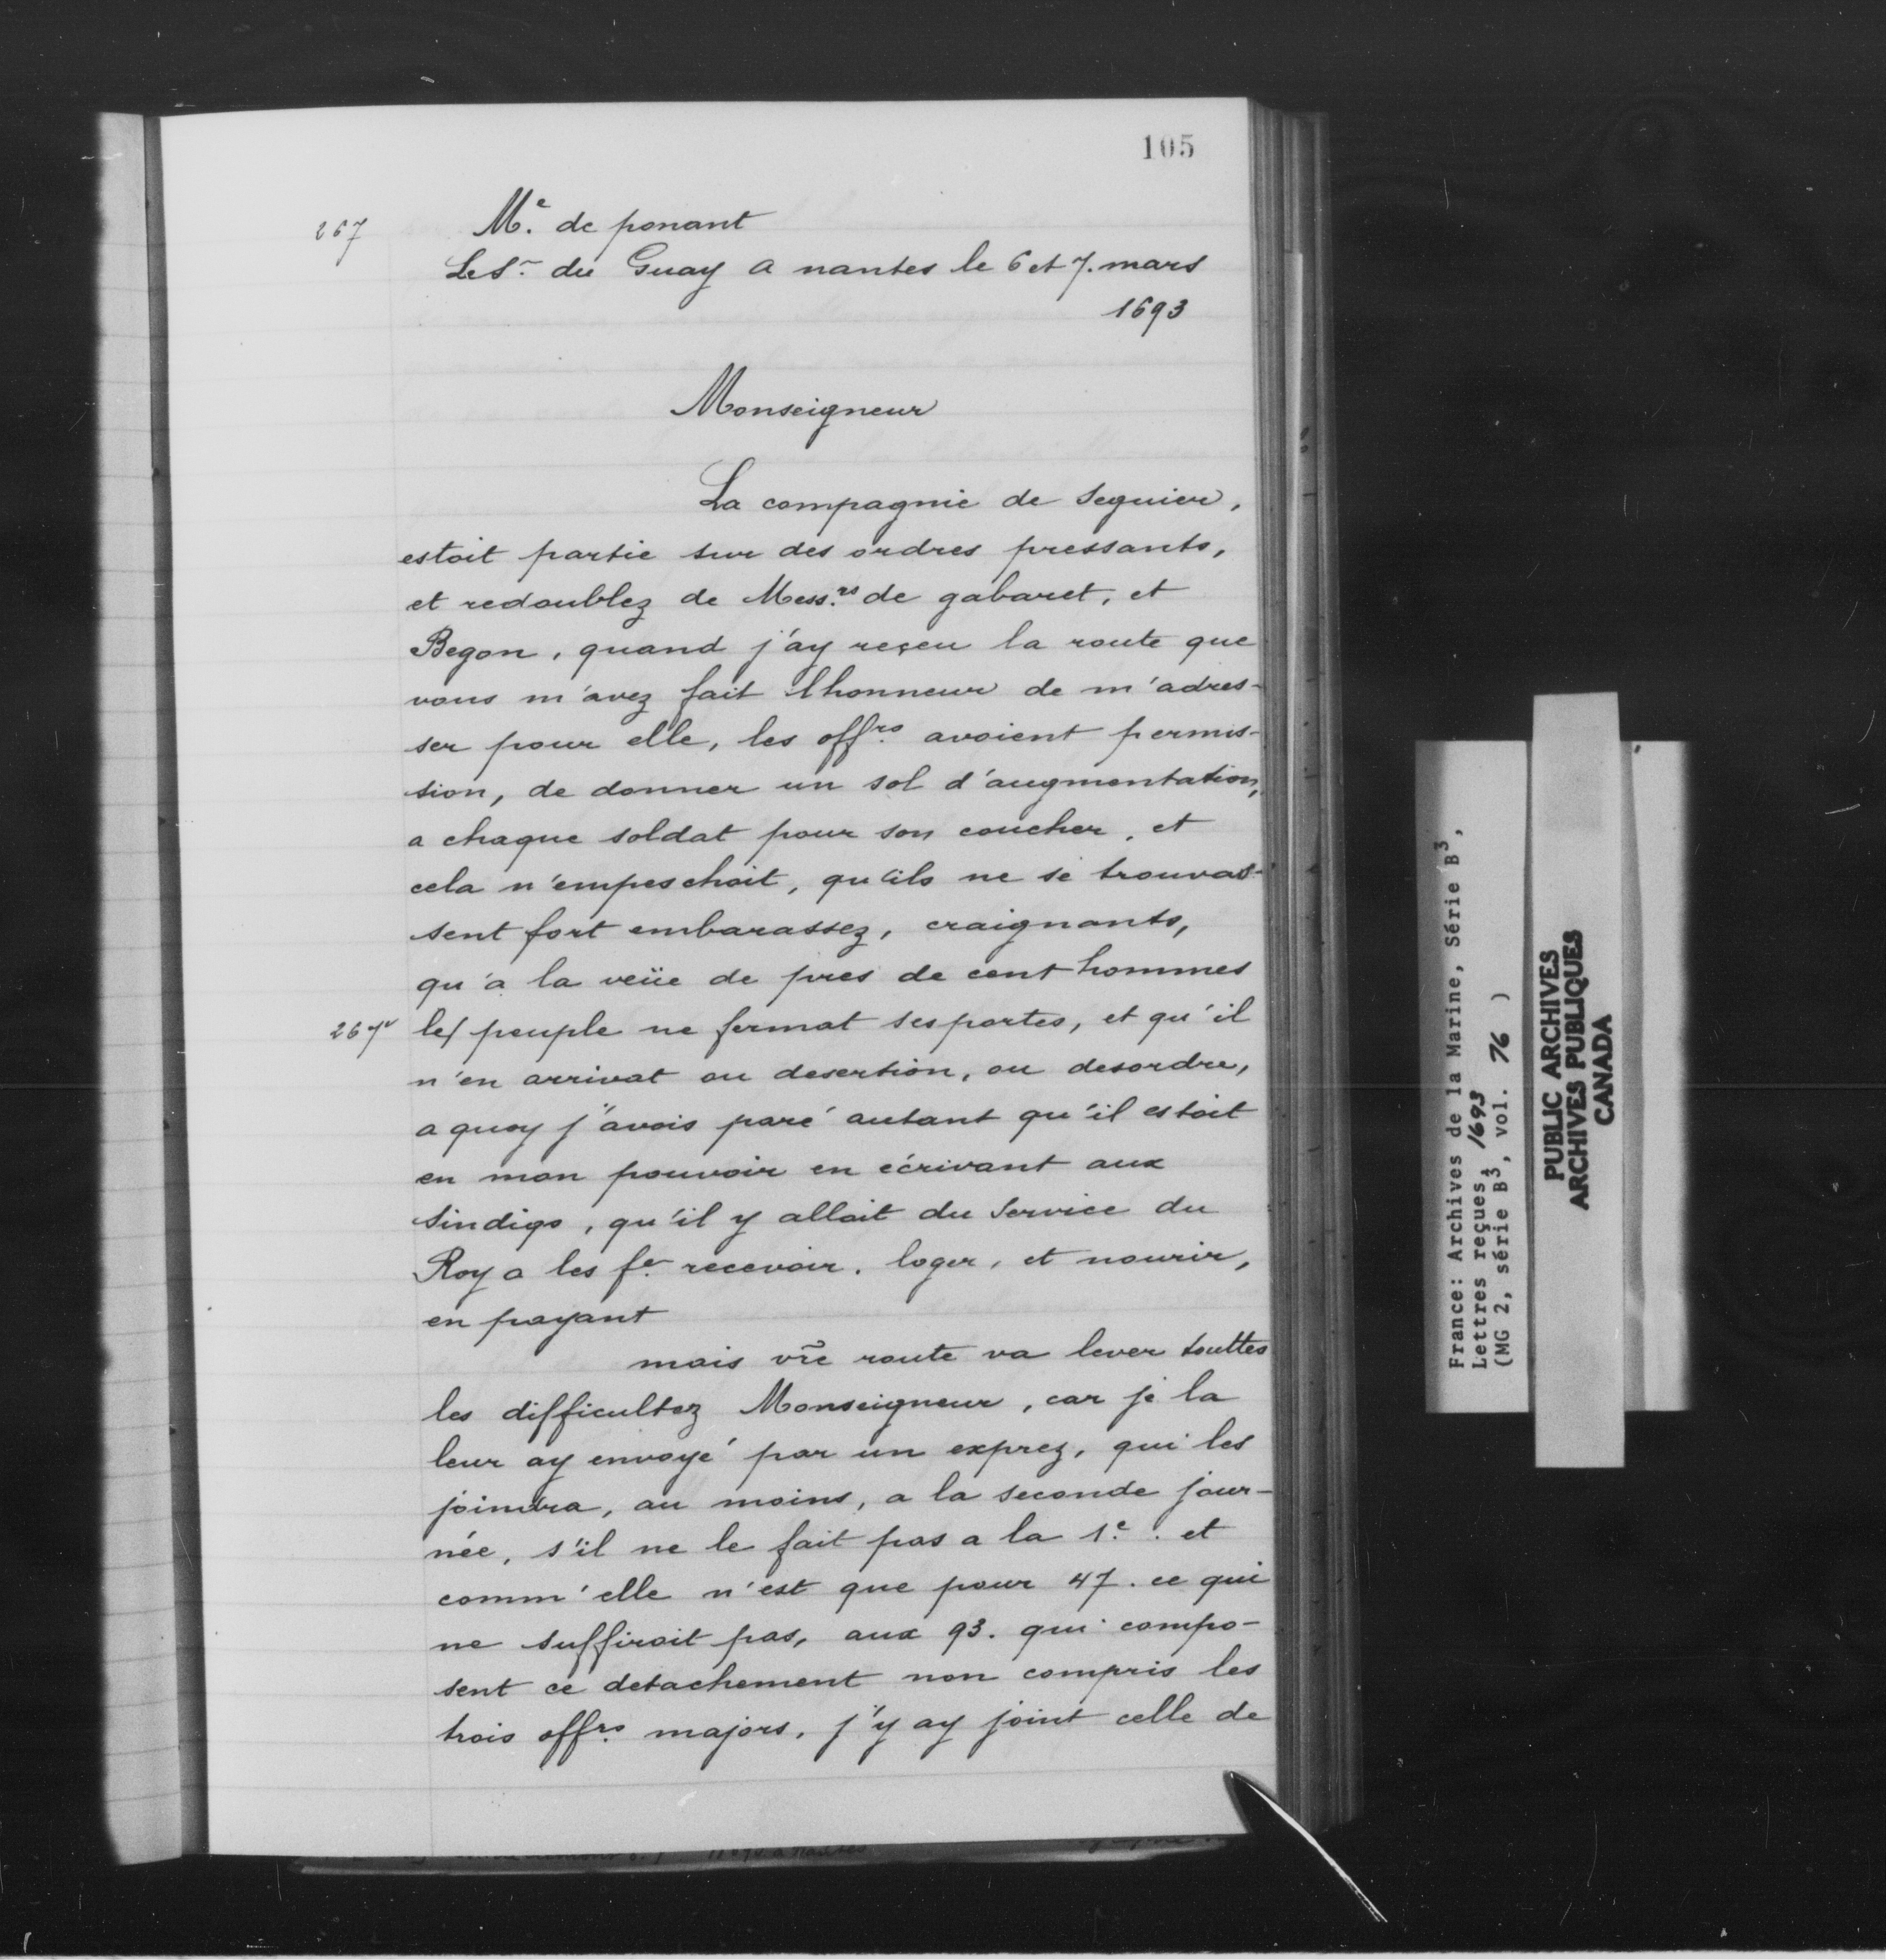 105
267
Me. de ponant
Le Sr. du Guay A nantes le 6 et 7. mars
1693
Monseigneur
La compagnie de Seguier,
estoit partie sur des ordres pressants,
et redoublez de Mess.rs de gabaret, et
Begon, quand j'ay reçeu la route que
vous m'avez fait lhonneur de m'adres-
ser pour elle, les offrs. avoient permis-
sion, de donner un sol d'augmentation,
a chaque soldat pour son coucher, et
cela n'empeschoit, qu'ils ne se trouvas-
sent fort embarassez, craignants,
qu'a la veüe de pres de cent hommes
267v le/ peuple ne fermat ses portes, et qu'il
n'en arrivat ou desertion, ou desordre,
a quoy j'avois paré autant qu'il estoit
en mon pouvoir en écrivant aux
Sindigs, qu'il y alloit du Service du
Roy a les fe. recevoir, loger, et nourir,
en payant
mais vre route va lever touttes
les difficultez Monseigneur, car je la
leur ay envoyé par un exprez, qui les
joindra, au moins, a la seconde jour-
née, s'il ne le fait pas a la 1e. et
comm'elle n'est que pour 47. ce qui
ne suffiroit pas, aux 93. qui compo-
sent ce detachement non compris les
trois offrs. majors, j'y ay joint celle de
France: Archives de la Marine, Série B3,
Lettres reçues, 1693
(MG 2, série B3, vol. 76 )
PUBLIC ARCHIVES
ARCHIVES PUBLIQUES
CANADA